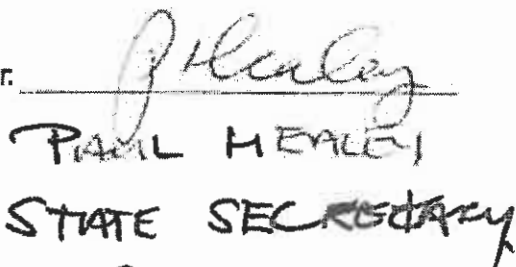 r. PHealey
PAUL HEALEY
STATE SECRETARY